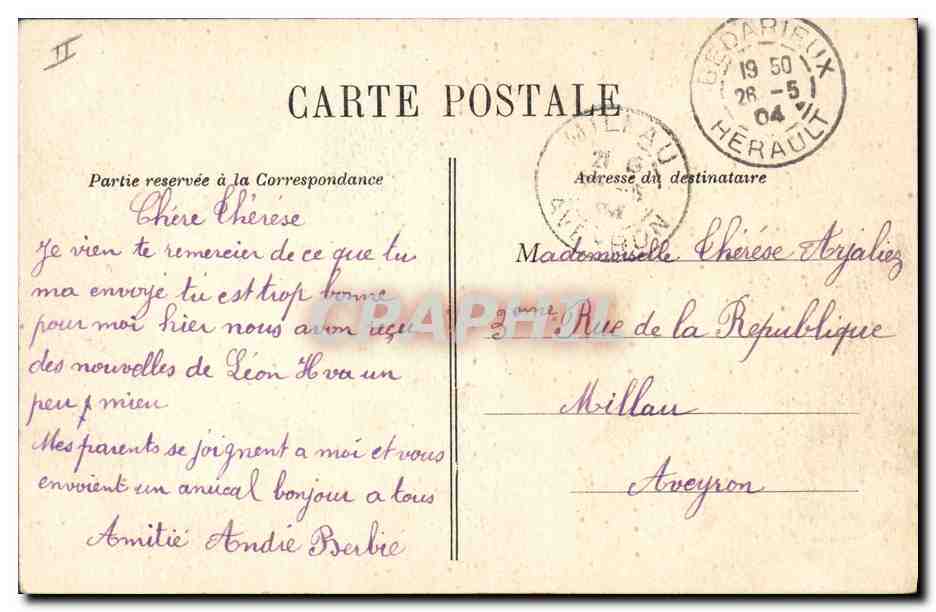 II
CARTE POSTALE
BEDARIEUX
19 50
26 -5
04
HERAULT
MILLAU
21
04
AVEYRON
Partie reservée à la Correspondance
Adresse du destinataire
Chére Thérése
Je vien te remercier de ce que tu
ma envoyé tu est trop bonne
pour moi hier nous avon reçu
des nouvelles de Léon Il va un
peu mieu
Mes parents se joignent a moi et vous
envoient un amical bonjour a tous
Amitié André Berbié
Mademoiselle Thérése Arjaliez
Rue de la Republique
Millau
Aveyron
CPARPHIL